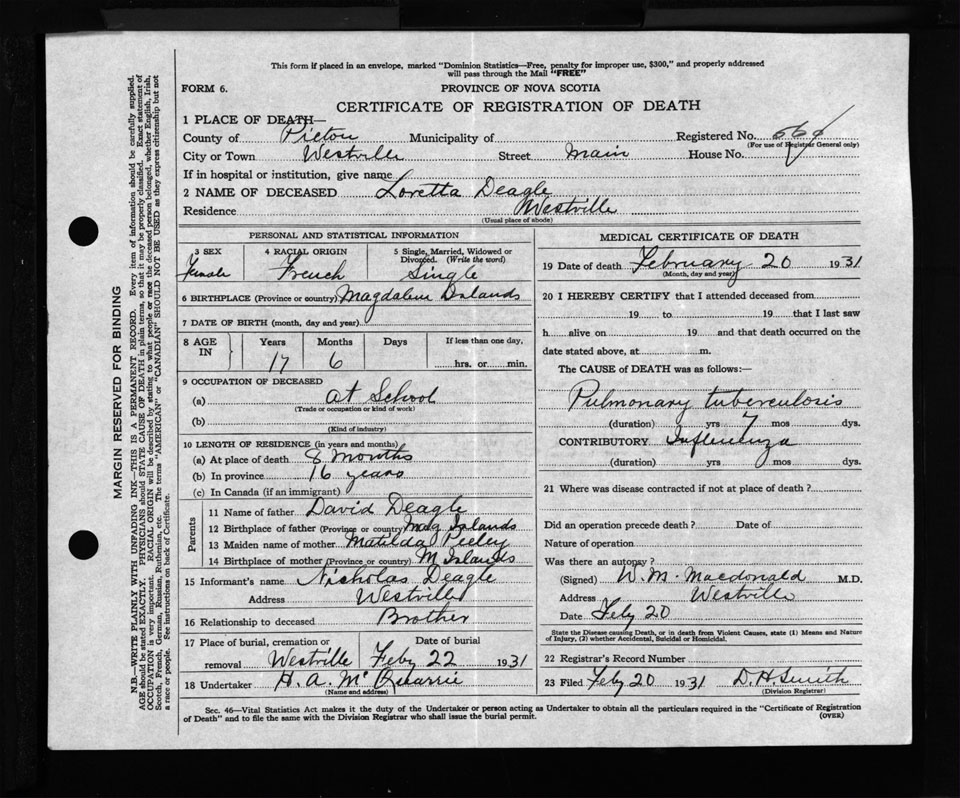 This form if placed in an envelope, marked "Dominion Statistics—Free, penalty for improper use, $300," and properly addressed
will pass through the Mail "FREE"
FORM 6. PROVINCE OF NOVA SCOTIA
CERTIFICATE OF REGISTRATION OF DEATH
1 PLACE OF DEATH—
County of Pictou Municipality of Registered No.
(For use of Registrar General only)
City or Town Westville Street Main House No.
If in hospital or institution, give name
2 NAME OF DECEASED Loretta Deagle
Residence Westville
(Usual place of abode)
PERSONAL AND STATISTICAL INFORMATION
3 SEX 4 RACIAL ORIGIN 5 Single, Married, Widowed or
Divorced. (Write the word)
Female French Single
6 BIRTHPLACE (Province or country) Magdalene Islands
7 DATE OF BIRTH (month, day and year)
8 AGE IN Years Months Days If less than one day,
17 6 hrs. or min.
9 OCCUPATION OF DECEASED
(a) at School
(Trade or occupation or kind of work)
(b)
(Kind of industry)
10 LENGTH OF RESIDENCE (in years and months)
(a) At place of death 8 months
(b) In province 16 years
(c) In Canada (if an immigrant)
Parents
11 Name of father David Deagle
12 Birthplace of father (Province or country) Mag Islands
13 Maiden name of mother Matilda
14 Birthplace of mother (Province or country) M Islands
15 Informant's name Nicholas Deagle
Address Westville
16 Relationship to deceased Brother
17 Place of burial, cremation or Date of burial
removal Westville Feby 22 1931
18 Undertaker H. A. Mc
(Name and address)
MEDICAL CERTIFICATE OF DEATH
19 Date of death February 20 1931
(Month, day and year)
20 I HEREBY CERTIFY that I attended deceased from
19 to 19 that I last saw
h alive on 19 and that death occurred on the
date stated above, at m.
The CAUSE of DEATH was as follows:—
Pulmonary tuberculosis
(duration) yrs 7 mos dys.
CONTRIBUTORY Influenza
(duration) yrs mos dys.
21 Where was disease contracted if not at place of death?
Did an operation precede death? Date of
Nature of operation
Was there an autopsy?
(Signed) W. M. Macdonald M.D.
Address Westville
Date Feby 20
State the Disease causing Death, or in death from Violent Causes, state (1) Means and Nature
of Injury, (2) whether Accidental, Suicidal or Homicidal.
22 Registrar's Record Number
23 Filed Feby 20 1931 D. H. Smith
(Division Registrar)
Sec. 46—Vital Statistics Act makes it the duty of the Undertaker or person acting as Undertaker to obtain all the particulars required in the "Certificate of Registration
of Death" and to file the same with the Division Registrar who shall issue the burial permit. (OVER)
MARGIN RESERVED FOR BINDING
N.B.—WRITE PLAINLY WITH UNFADING INK—THIS IS A PERMANENT RECORD. Every item of information should be carefully supplied.
AGE should be stated EXACTLY. PHYSICIANS should STATE CAUSE OF DEATH in plain terms, so that it may be properly classified. Exact statement of
OCCUPATION is very important. RACIAL ORIGIN will be described by stating to what people or race the deceased person belonged, whether English, Irish,
Scotch, French, German, Russian, Ruthenian, etc. The terms "AMERICAN" or "CANADIAN" SHOULD NOT BE USED as they express citizenship but not
a race or people. See instructions on back of Certificate.